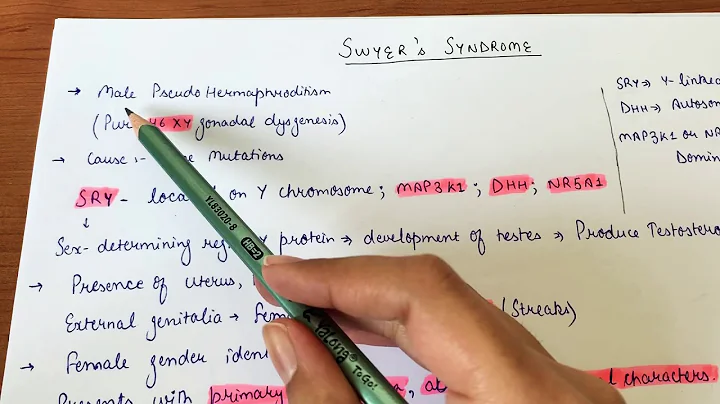 SWYER'S SYNDROME
→ Male Pseudo Hermaphroditism
(Pur 46 XY gonadal dysgenesis)
→ Cause :- Mutations
SRY - loca on Y chromosome ; MAP3K1 ; DHH ; NR5A1
↓
Sex-determining reg Y protein → development of testes → Produce Testostero
→ Presence of uterus,
(Streaks)
External genitalia → Fem
→ Female gender iden
Presents with primary characters.
SRY → Y-linked
DHH → Autosom
MAP3K1 or NR
Domin
YL83020-8
HB=2
Yalong
TO GO!